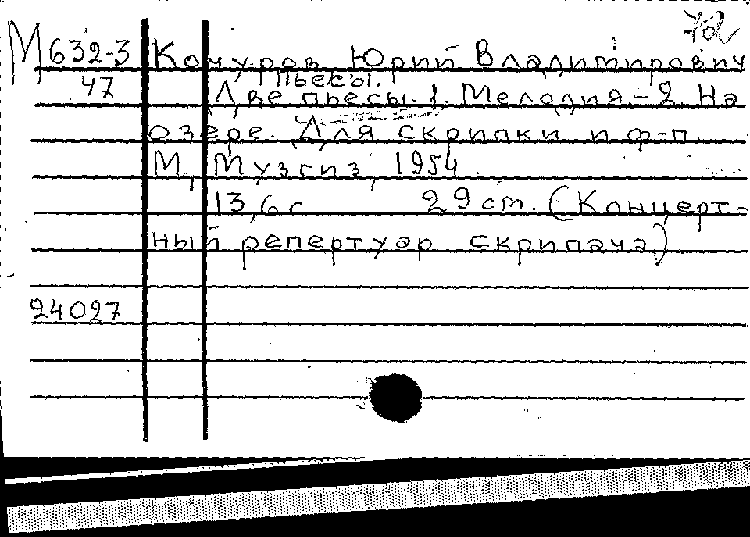 72
М 632-3 Кочуров Юрий Владимирович
47 Пьесы.
Две пьесы. 1. Мелодия - 2. На
озере. Для скрипки и ф-п.
М, Музгиз, 1954
13, 6 с 29 ст. (Концерт-
ный репертуар скрипача)
24027